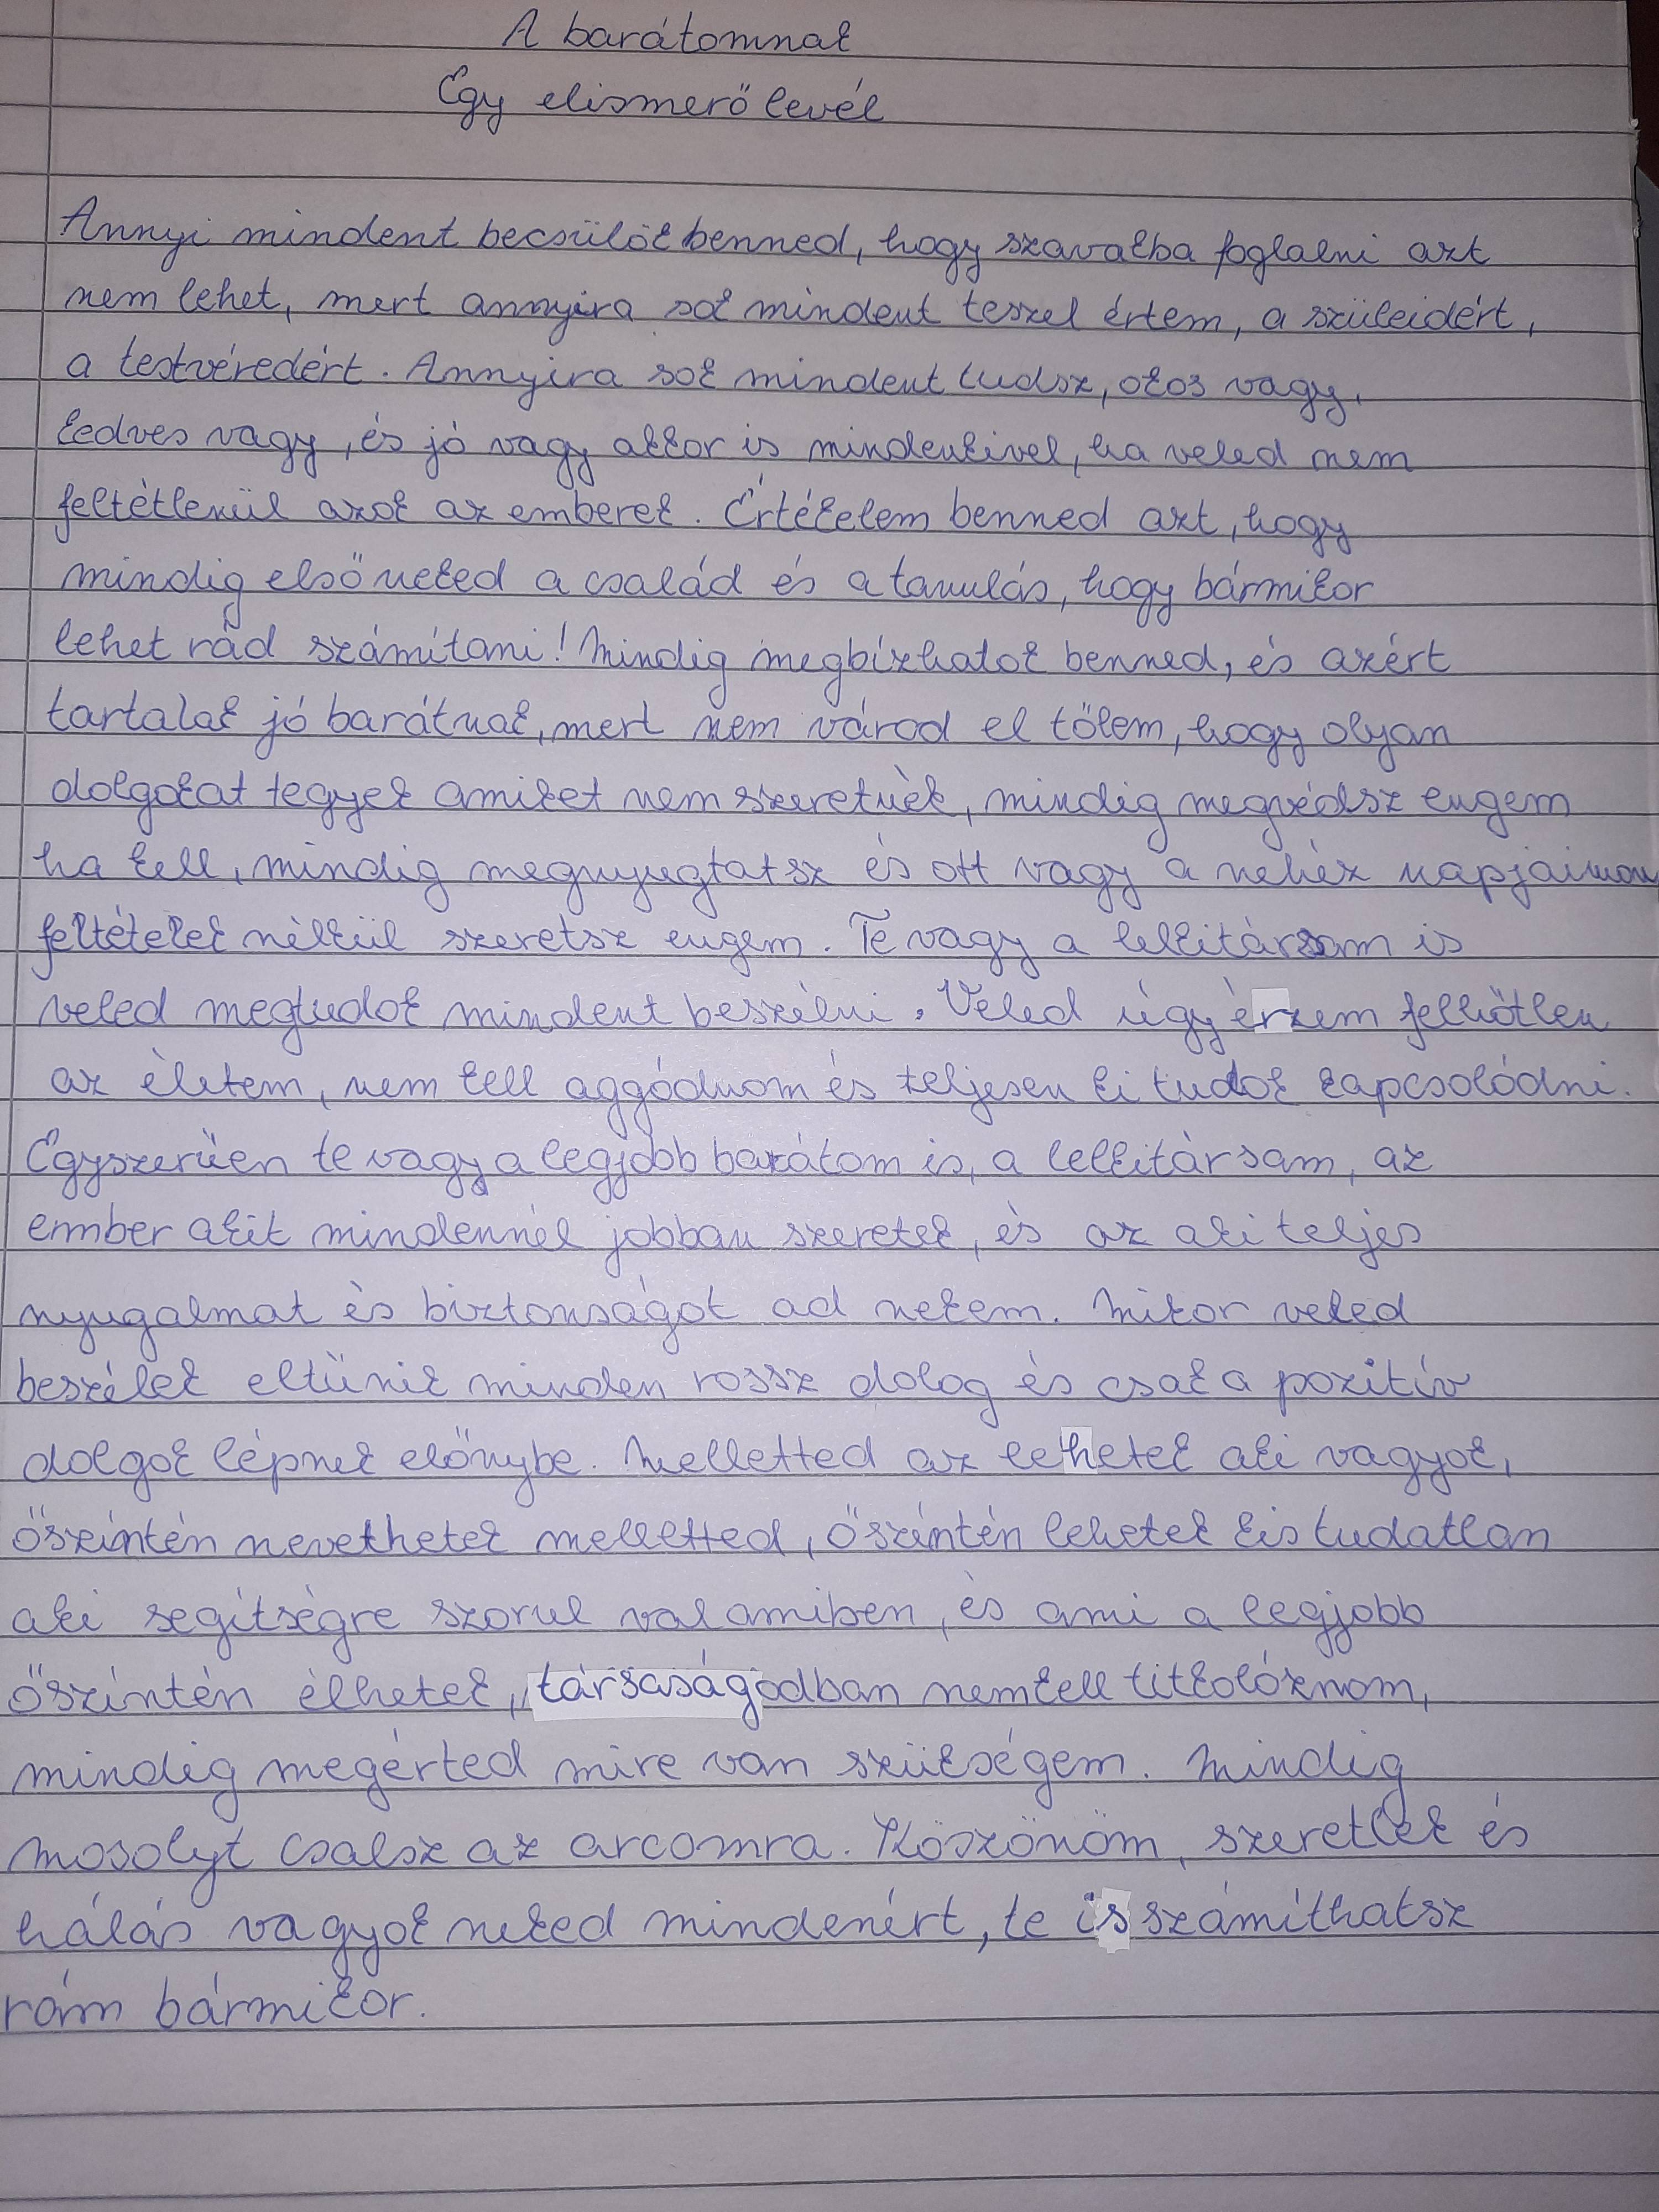 A barátomnak
Egy elismerő levél
Annyi mindent becsülök benned, hogy szavakba foglalni azt
nem lehet, mert annyira sok mindent teszel értem, a szüleidért,
a testvéredért. Annyira sok mindent tudsz, okos vagy,
kedves vagy, és jó vagy akkor is mindenkivel, ha veled nem
feltétlenül azok az emberek. Értékelem benned azt, hogy
mindig első neked a család és a tanulás, hogy bármikor
lehet rád számítani! Mindig megbízhatok benned, és azért
tartalak jó barátnak, mert nem várod el tőlem, hogy olyan
dolgokat tegyek amiket nem szeretnék, mindig megvédsz engem
ha kell, mindig megnyugtatsz és ott vagy a nehéz napjaimon
feltételek nélkül szeretsz engem. Te vagy a lelkitársam is
veled megtudok mindent beszélni. Veled úgy érzem felhőtlen
az életem, nem kell aggódnom és teljesen ki tudok kapcsolódni.
Egyszerűen te vagy a legjobb barátom is, a lelkitársam, az
ember akit mindennél jobban szeretek, és az aki teljes
nyugalmat és biztonságot ad nekem. Mikor veled
beszélek eltűnik minden rossz dolog és csak a pozitív
dolgok lépnek előnybe. Melletted az lehetek aki vagyok,
őszintén nevethetek melletted, őszintén lehetek kis tudatlan
aki segítségre szorul valamiben, és ami a legjobb
őszintén élhetek, társaságodban nem kell titkolóznom,
mindig megérted mire van szükségem. Mindig
mosolyt csalsz az arcomra. Köszönöm, szeretlek és
hálás vagyok neked mindenért, te is számíthatsz
rám bármikor.